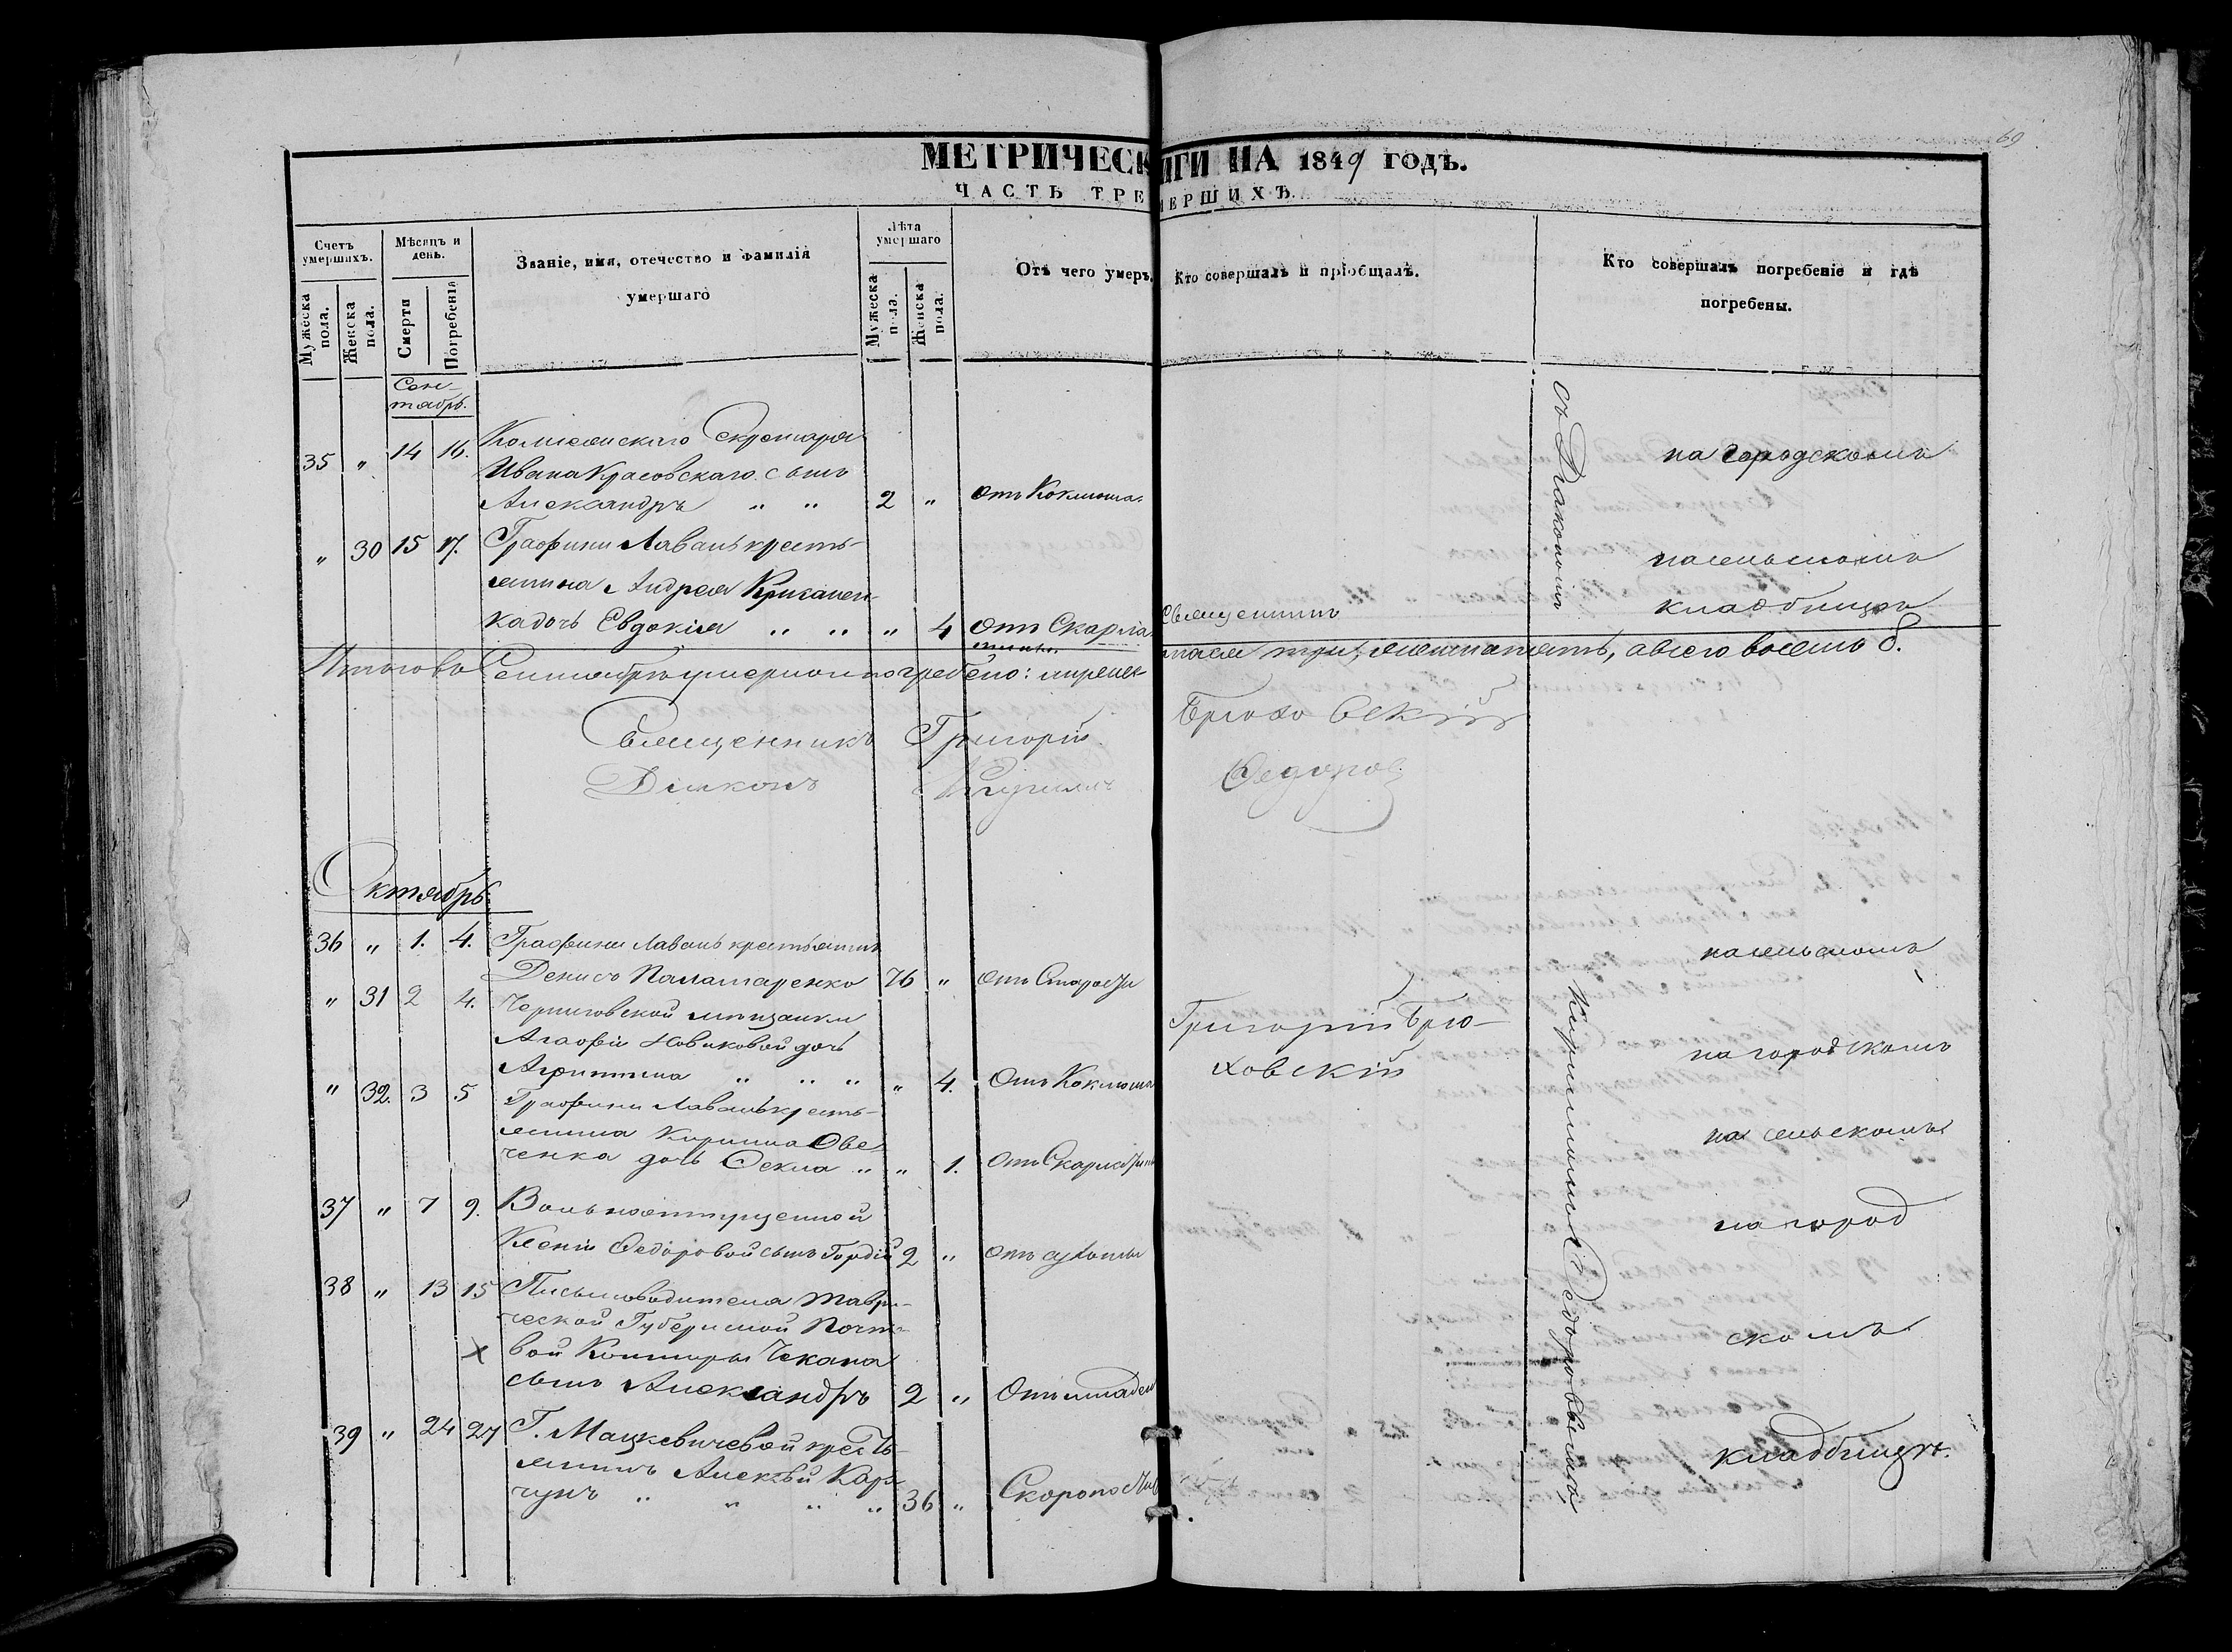 69
МЕТРИЧЕСК ИГИ НА 1849 ГОДЪ.
ЧАСТЬ ТРЕ МЕРШИХЪ.
Счетъ умершихъ.
Мужеска пола.
Женска пола.
Мѣсяцъ и день.
Смерти
Погребенія
Званіе, имя, отечество и фамилія
умершаго
Лѣта умершаго
Мужеска пола.
Женска пола.
Отъ чего умеръ.
Кто совершалъ и пріобщалъ.
Кто совершалъ погребеніе и гдѣ
погребены.
Сен-
тябрь.
35 " 14 16. Колежскаго Секретаря
Ивана Красовскаго сынъ
Александръ " " 2 " отъ Коклюша
на Городскомъ
" 30 15 17. Графини Лаваль кресть-
янина Андрея
кадочь Евдокія " " " 4 отъ Скарла
тины.
на сельскомъ
кладбищѣ
Священникъ
съ Діакономъ
Итого въ Сентябрѣ умерло и погребено: мужеск
пола три, женска пять, а всего восемь 8.
Священникъ Григорій Брюховскій
Діаконъ Кириллъ Федоровъ
Октябрь
36 " 1. 4. Графини Лаваль крестьянинъ
Денисъ Паламаренко 76 " отъ Старости
на сельскомъ
" 31 2 4. Черниговской мѣщанки
Агафіи Новиковой дочь
Агриппина " " " " 4. Отъ Коклюша
Григорій Брю-
ховскій
на городскомъ
" 32. 3 5 Графини Лаваль кресть-
янина Кирилла Ове-
ченка дочь Фекла " " 1. отъ Скарлатины
на сельскомъ
37 " 7 9. Вольноотпущенной
Ксеніи Федоровой сынъ Гордій 2 " отъ сухоты
на город
38 " 13 15 Письмоводителя Таври-
ческой Губернской Почто-
х вой Конторы Чекана
сынъ Александръ 2 " Отъ младен
скомъ
39 " 24 27 Г. Мацкевичевой кресть-
янинъ Алексѣй Кор-
чунъ " " " " 36 " Скоропостиж
кладбищѣ.
Кирилломъ Федоровымъ